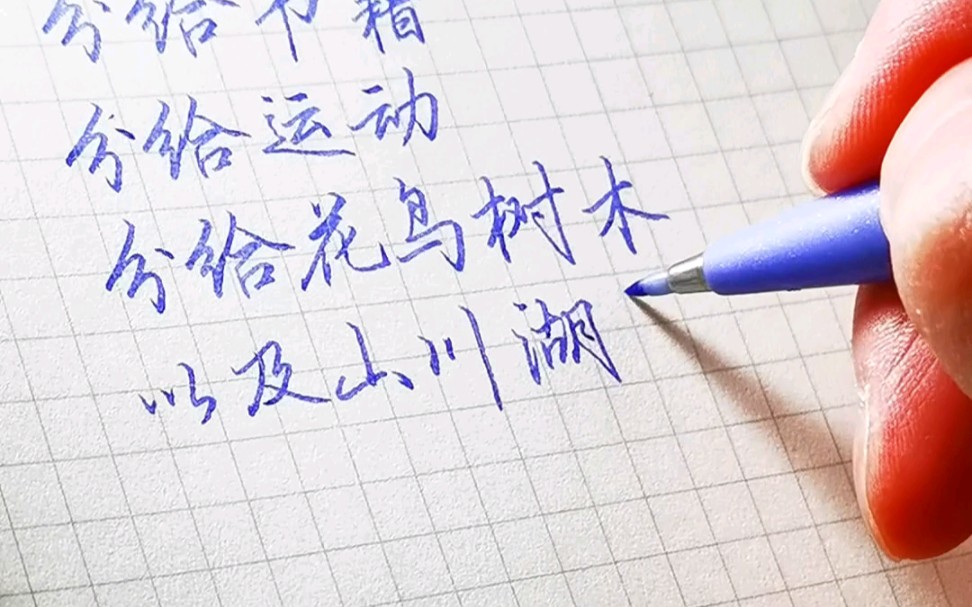 分给书籍
分给运动
分给花鸟树木
以及山川湖